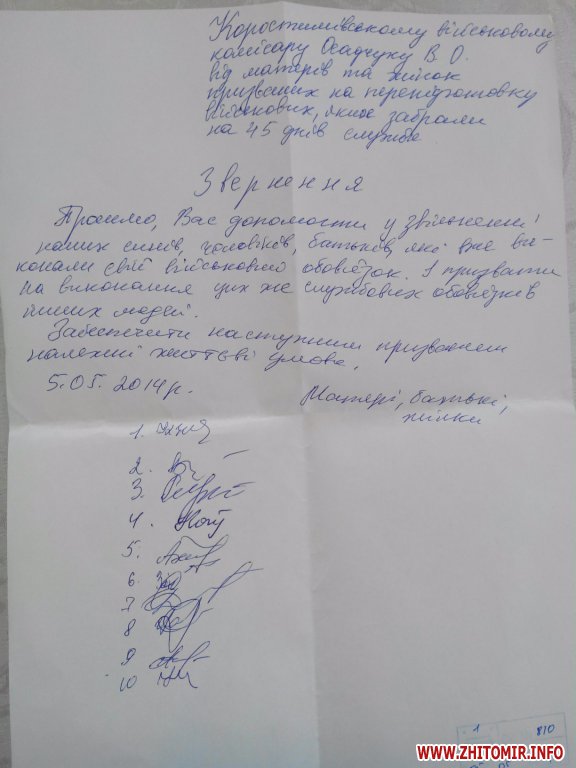 Коростишівському військовому
комісару Осадчуку В. О.
від матерів та жінок
призваних на перепідготовку
військових, яких забрали
на 45 днів служби
Звернення
Просимо, Вас допомогти у звільненні
наших синів, чоловіків, батьків, які вже ви-
конали свій військовий обов'язок. І призвати
на виконання цих же службових обов'язків
інших людей.
Забезпечити наступним призваним
належні життєві умови.
5.05.2014 р.
Матері, батьки,
жінки
1.
2.
3.
4.
5.
6.
7
8
9
10
1 810
WWW.ZHITOMIR.INFO